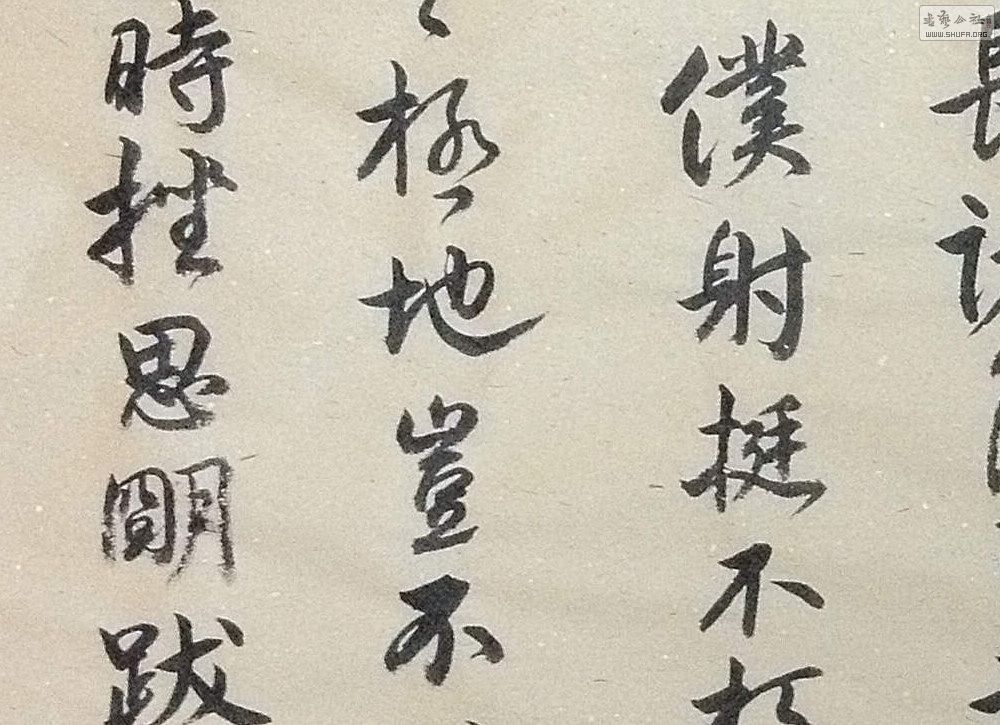 僕射挺不
極地豈不
時挫思明跋
書藝公社
WWW.SHUFA.ORG